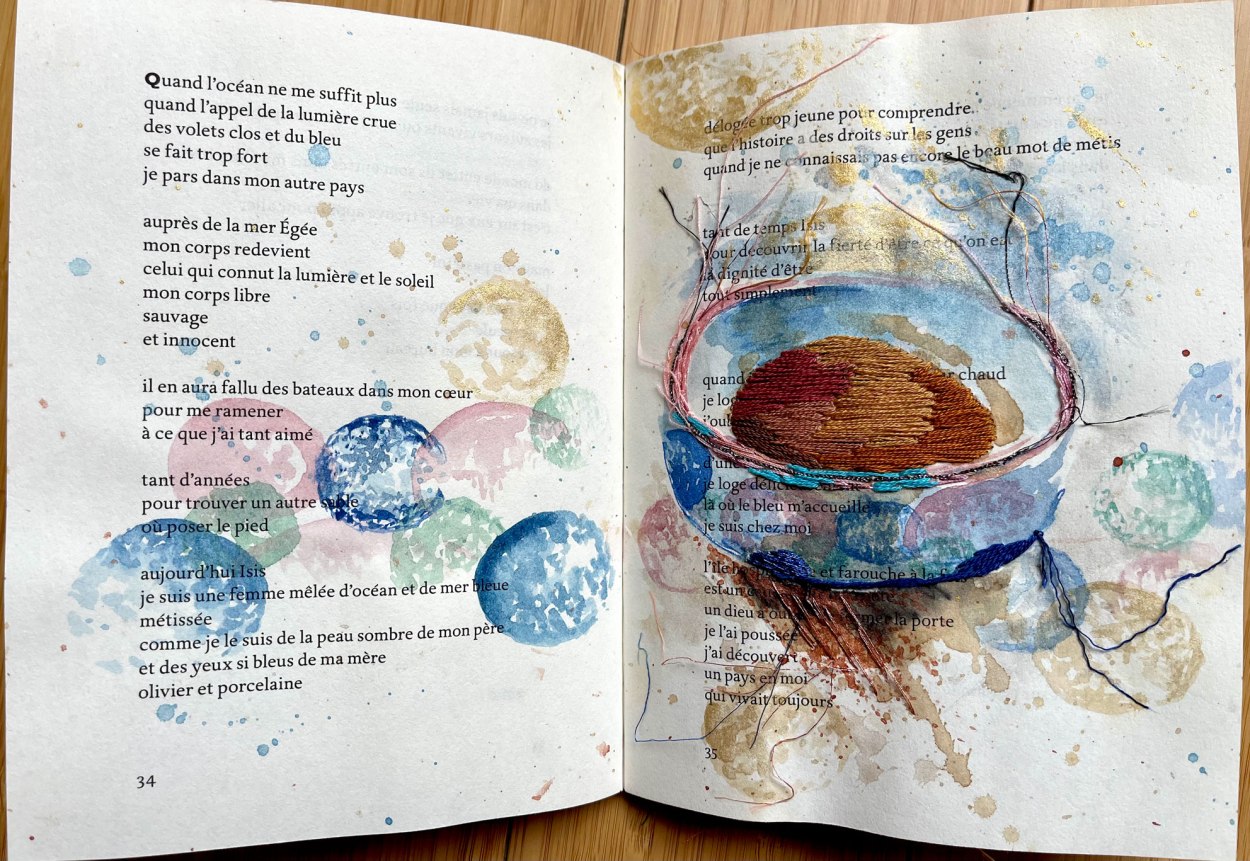 Quand l'océan ne me suffit plus
quand l'appel de la lumière crue
des volets clos et du bleu
se fait trop fort
je pars dans mon autre pays
auprès de la mer Égée
mon corps redevient
celui qui connut la lumière et le soleil
mon corps libre
sauvage
et innocent
il en aura fallu des bateaux dans mon cœur
pour me ramener
à ce que j'ai tant aimé
tant d'années
pour trouver un autre sable
où poser le pied
aujourd'hui Isis
je suis une femme mêlée d'océan et de mer bleue
métissée
comme je le suis de la peau sombre de mon père
et des yeux si bleus de ma mère
olivier et porcelaine
34
délogée trop jeune pour comprendre
que l'histoire a des droits sur les gens
quand je ne connaissais pas encore le beau mot de métis
tant de temps Isis
pour découvrir la fierté d'être ce qu'on est
la dignité d'être
tout simplement
quand chaud
je
d'une
je loge
là où le bleu m'accueille
je suis chez moi
l'île et farouche à la
est un
un dieu a la porte
je l'ai poussée
j'ai découvert
un pays en moi
qui vivait toujours
35